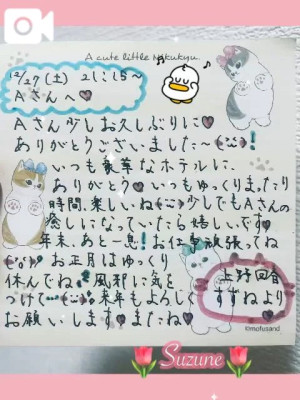 A cute little nikukyu.
12/27(土) 21:15〜
Aさんへ♥
Aさん少しお久しぶりに♥
ありがとうございました〜!
いつも豪華なホテルに
ありがとう♥いつもゆっくりまったり
時間楽しいね 少しでもAさんの
癒しになっていたら嬉しいです♥
年末、あと一息!お仕事頑張ってね
お正月はゆっくり
休んでね 風邪に気を
つけて 来年もよろしく
お願いします♥またね♥
すずねより
©mofusand
Suzune